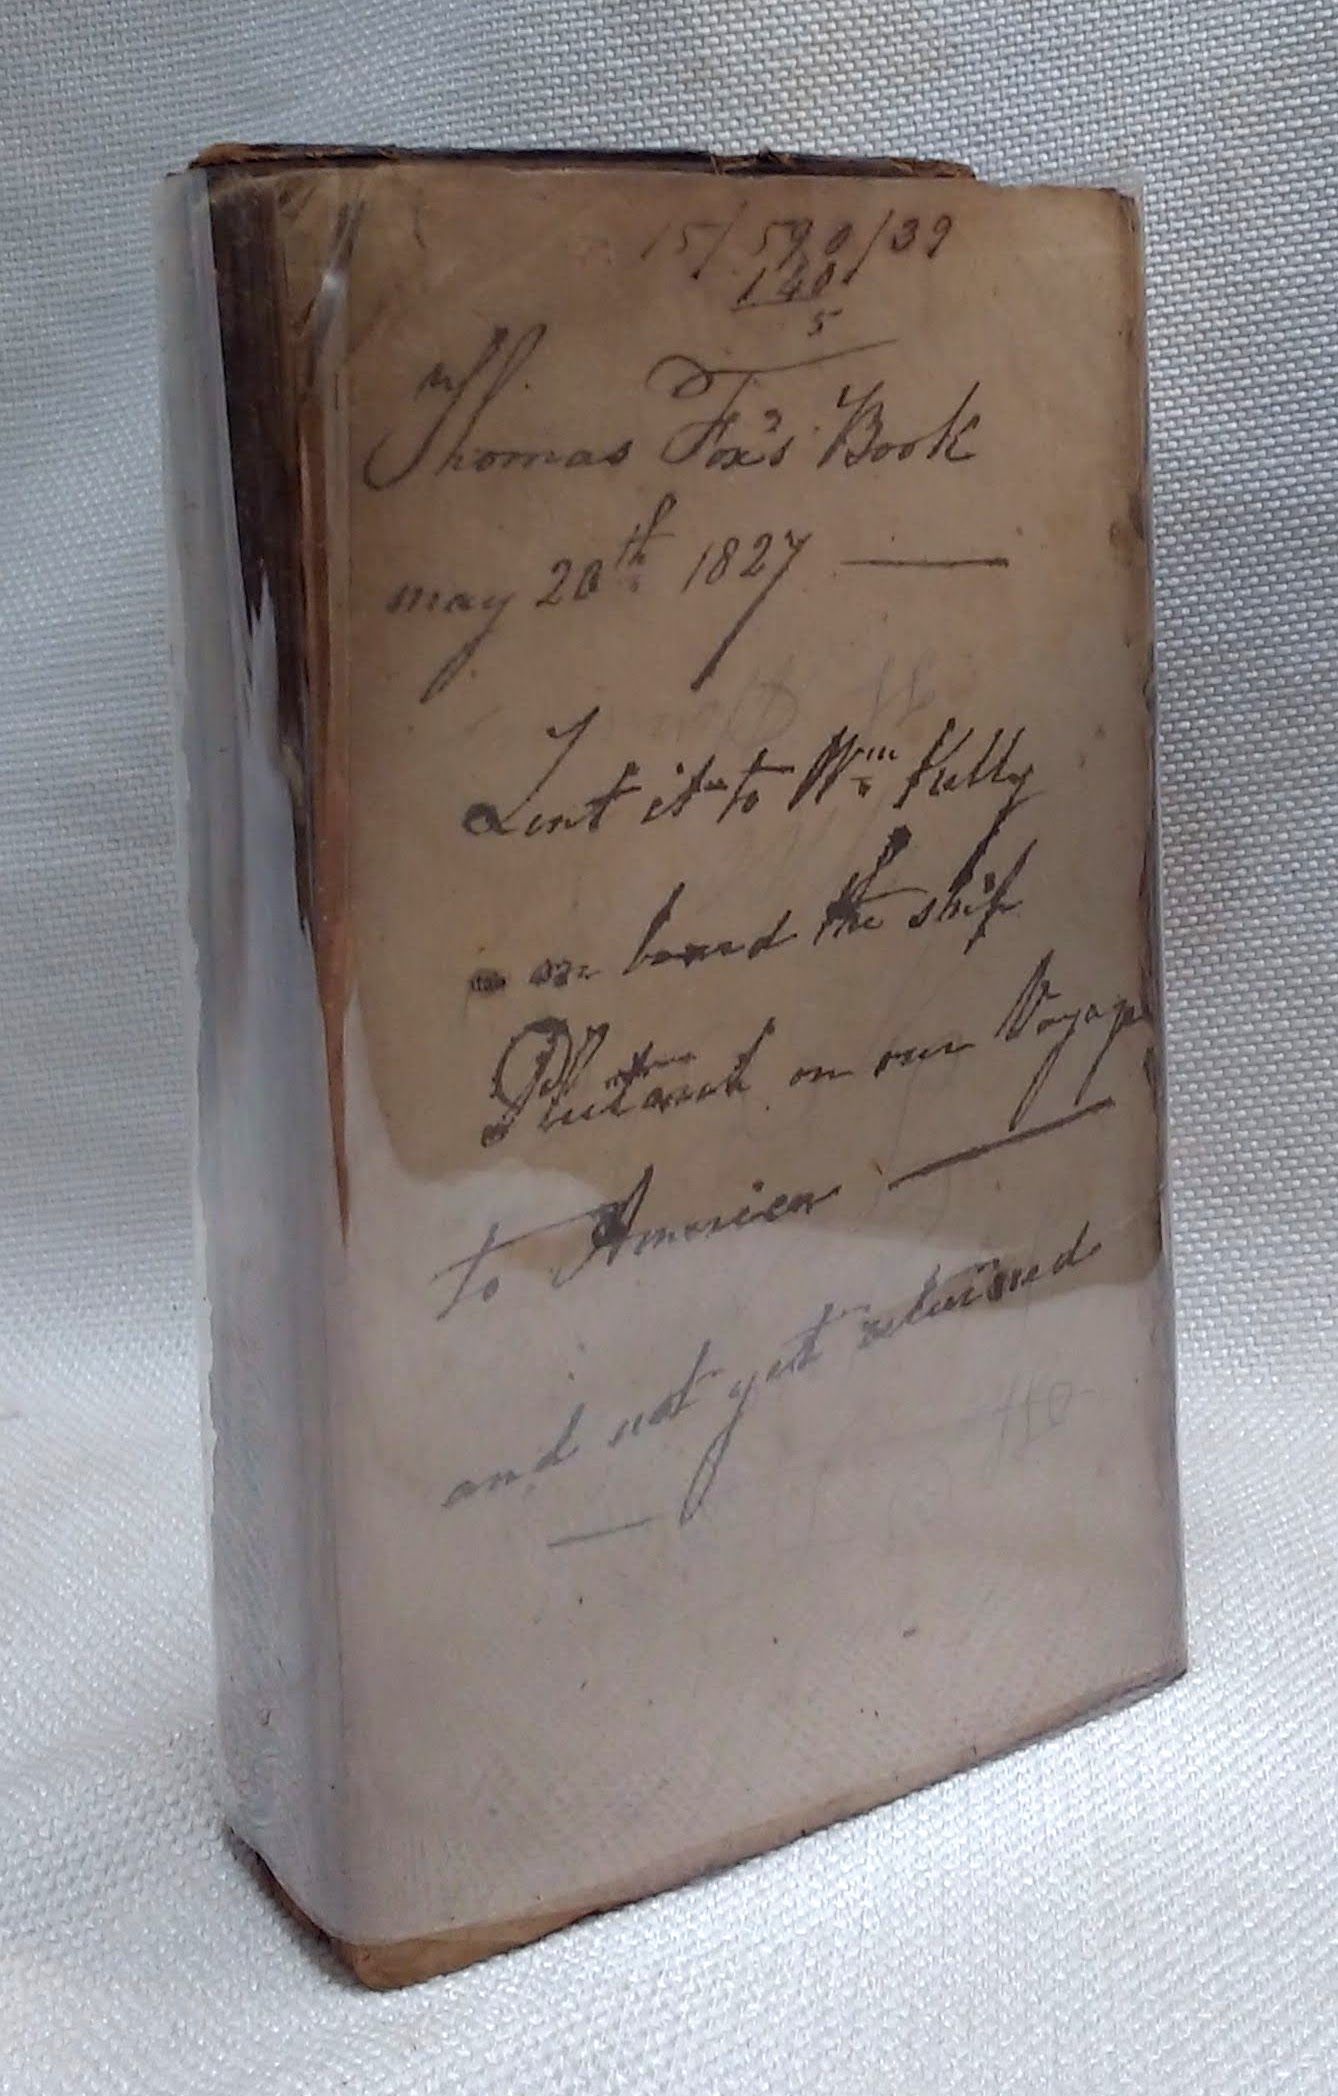 15/590/39
140
5
Thomas Fox's Book
may 20th 1827 —
Lent it to Wm Kelly
on board the ship
Plutarch on our Voyage
to America —
and not yet returned
—